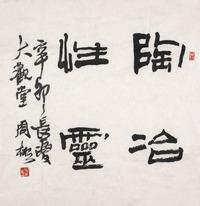 陶冶
性靈
辛卯長夏
大觀堂周彬